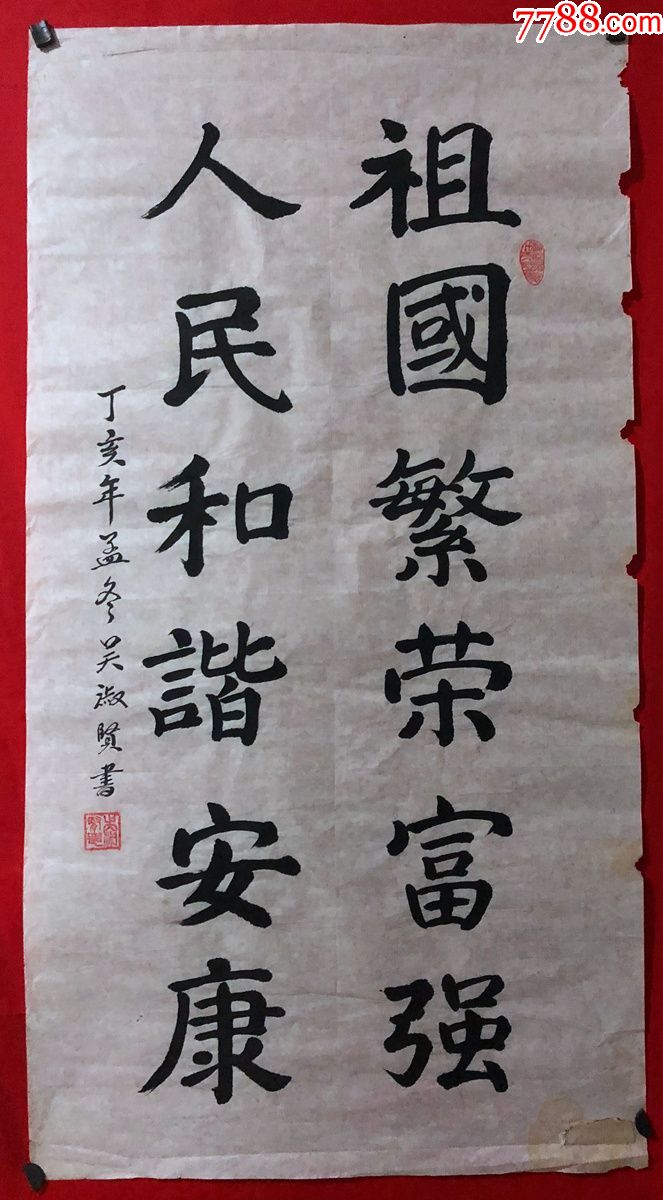 7788.com
祖國繁荣富强
人民和諧安康
丁亥年孟冬吴淑賢書